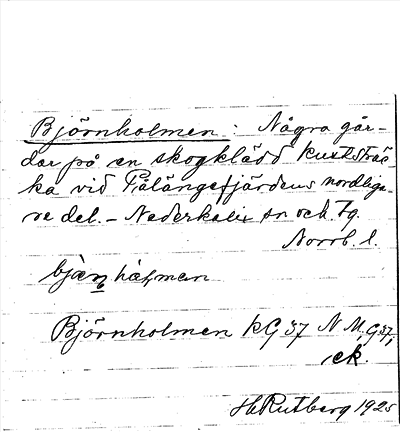 Björnholmen: Några går-
dar på en skogklädd kuststräc-
ka vid Pålängefjärdens nordliga-
re del. - Nederkalix sn och Tg.
Norrb. l.
bjæ̀ṇhàlmen
Björnholmen kG 37 N M, G37,
ek.
H Rutberg 1925